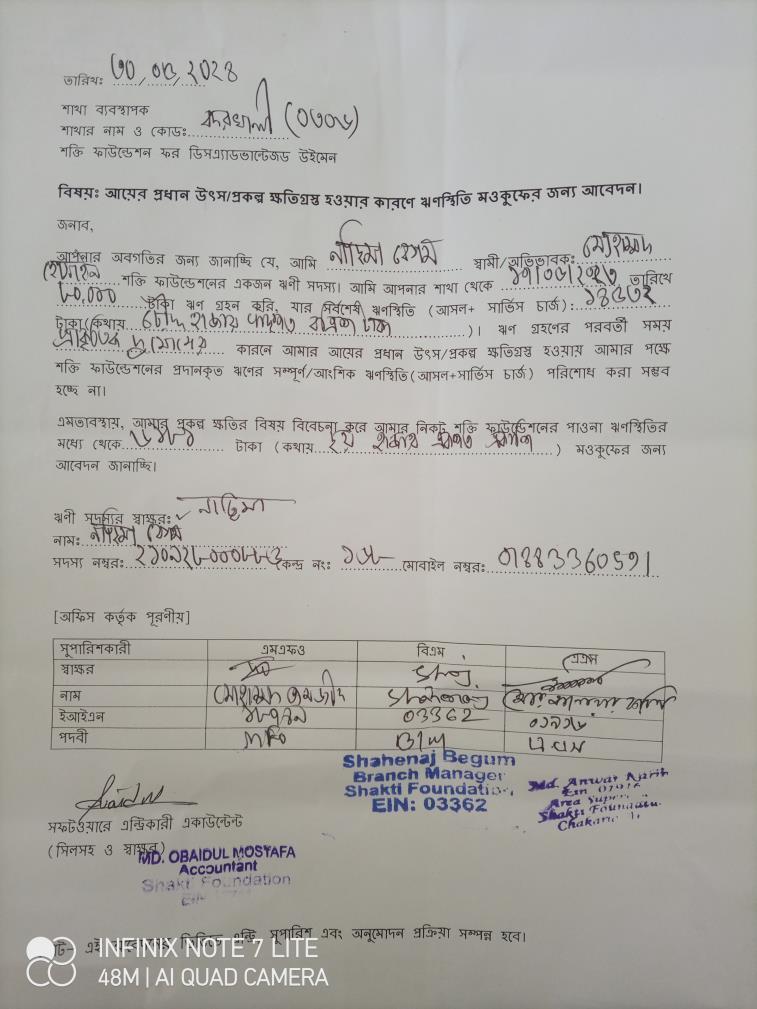 তারিখঃ ৩০/০৫/২০২৪
শাখা ব্যবস্থাপক
শাখার নাম ও কোডঃ বদরখালী (০৩০৬)
শক্তি ফাউন্ডেশন ফর ডিসএ্যাডভান্টেজড উইমেন
বিষয়ঃ আয়ের প্রধান উৎস/প্রকল্প ক্ষতিগ্রস্থ হওয়ার কারণে ঋণস্থিতি মওকুফের জন্য আবেদন।
জনাব,
আপনার অবগতির জন্য জানাচ্ছি যে, আমি নাছিমা বেগম স্বামী/অভিভাবক: মোহাম্মদ
হোছাইন শক্তি ফাউন্ডেশনের একজন ঋণী সদস্য। আমি আপনার শাখা থেকে তারিখে
৮০,০০০ টাকা ঋণ গ্রহন করি, যার সর্বশেষ ঋণস্থিতি (আসল+ সার্ভিস চার্জ): ১৪৫৩২
টাকা (কথায় চৌদ্দ হাজার পাঁচশত বত্রিশ টাকা)। ঋণ গ্রহণের পরবর্তী সময়
প্রাকৃতিক দুর্যোগের কারনে আমার আয়ের প্রধান উৎস/প্রকল্প ক্ষতিগ্রস্থ হওয়ায় আমার পক্ষে
শক্তি ফাউন্ডেশনের প্রদানকৃত ঋণের সম্পূর্ণ/আংশিক ঋণস্থিতি (আসল+সার্ভিস চার্জ) পরিশোধ করা সম্ভব
হচ্ছে না।
এমতাবস্থায়, আমার প্রকল্প ক্ষতির বিষয় বিবেচনা করে আমার নিকট শক্তি ফাউন্ডেশনের পাওনা ঋণস্থিতির
মধ্যে থেকে টাকা (কথায় ছয় হাজার) মওকুফের জন্য
আবেদন জানাচ্ছি।
ঋণী সদস্যের স্বাক্ষর: নাছিমা
নাম: নাছিমা বেগম
সদস্য নম্বর: কেন্দ্র নং: ১৬৮ মোবাইল নম্বর:
[অফিস কর্তৃক পূরণীয়]
সুপারিশকারী এমএফও বিএম এএস
স্বাক্ষর
নাম মোহাম্মদ Shahenaj
ইআইএন 03362
পদবী MFO BM এ এস
Shahenaj Begum
Branch Manager
Shakti Foundation,
EIN: 03362
Md. Anwar
Ein
Area
Shakti
Obaidul
সফটওয়ারে এন্ট্রিকারী একাউন্টেন্ট
(সিলসহ ও স্বাক্ষর)
MD. OBAIDUL MOSTAFA
Accountant
Shakti Foundation
EIN
এন্ট্রি সুপারিশ এবং অনুমোদন প্রক্রিয়া সম্পন্ন হবে।
INFINIX NOTE 7 LITE
48M | AI QUAD CAMERA